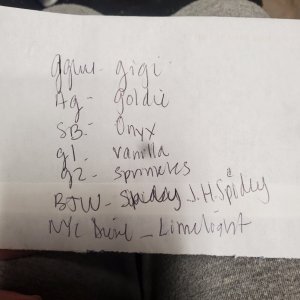 gigi
Ag - goldie
SB - Onyx
g1. vanilla
g2 - sprinkles
BJW - J.H. Spidey
NYC - Limelight